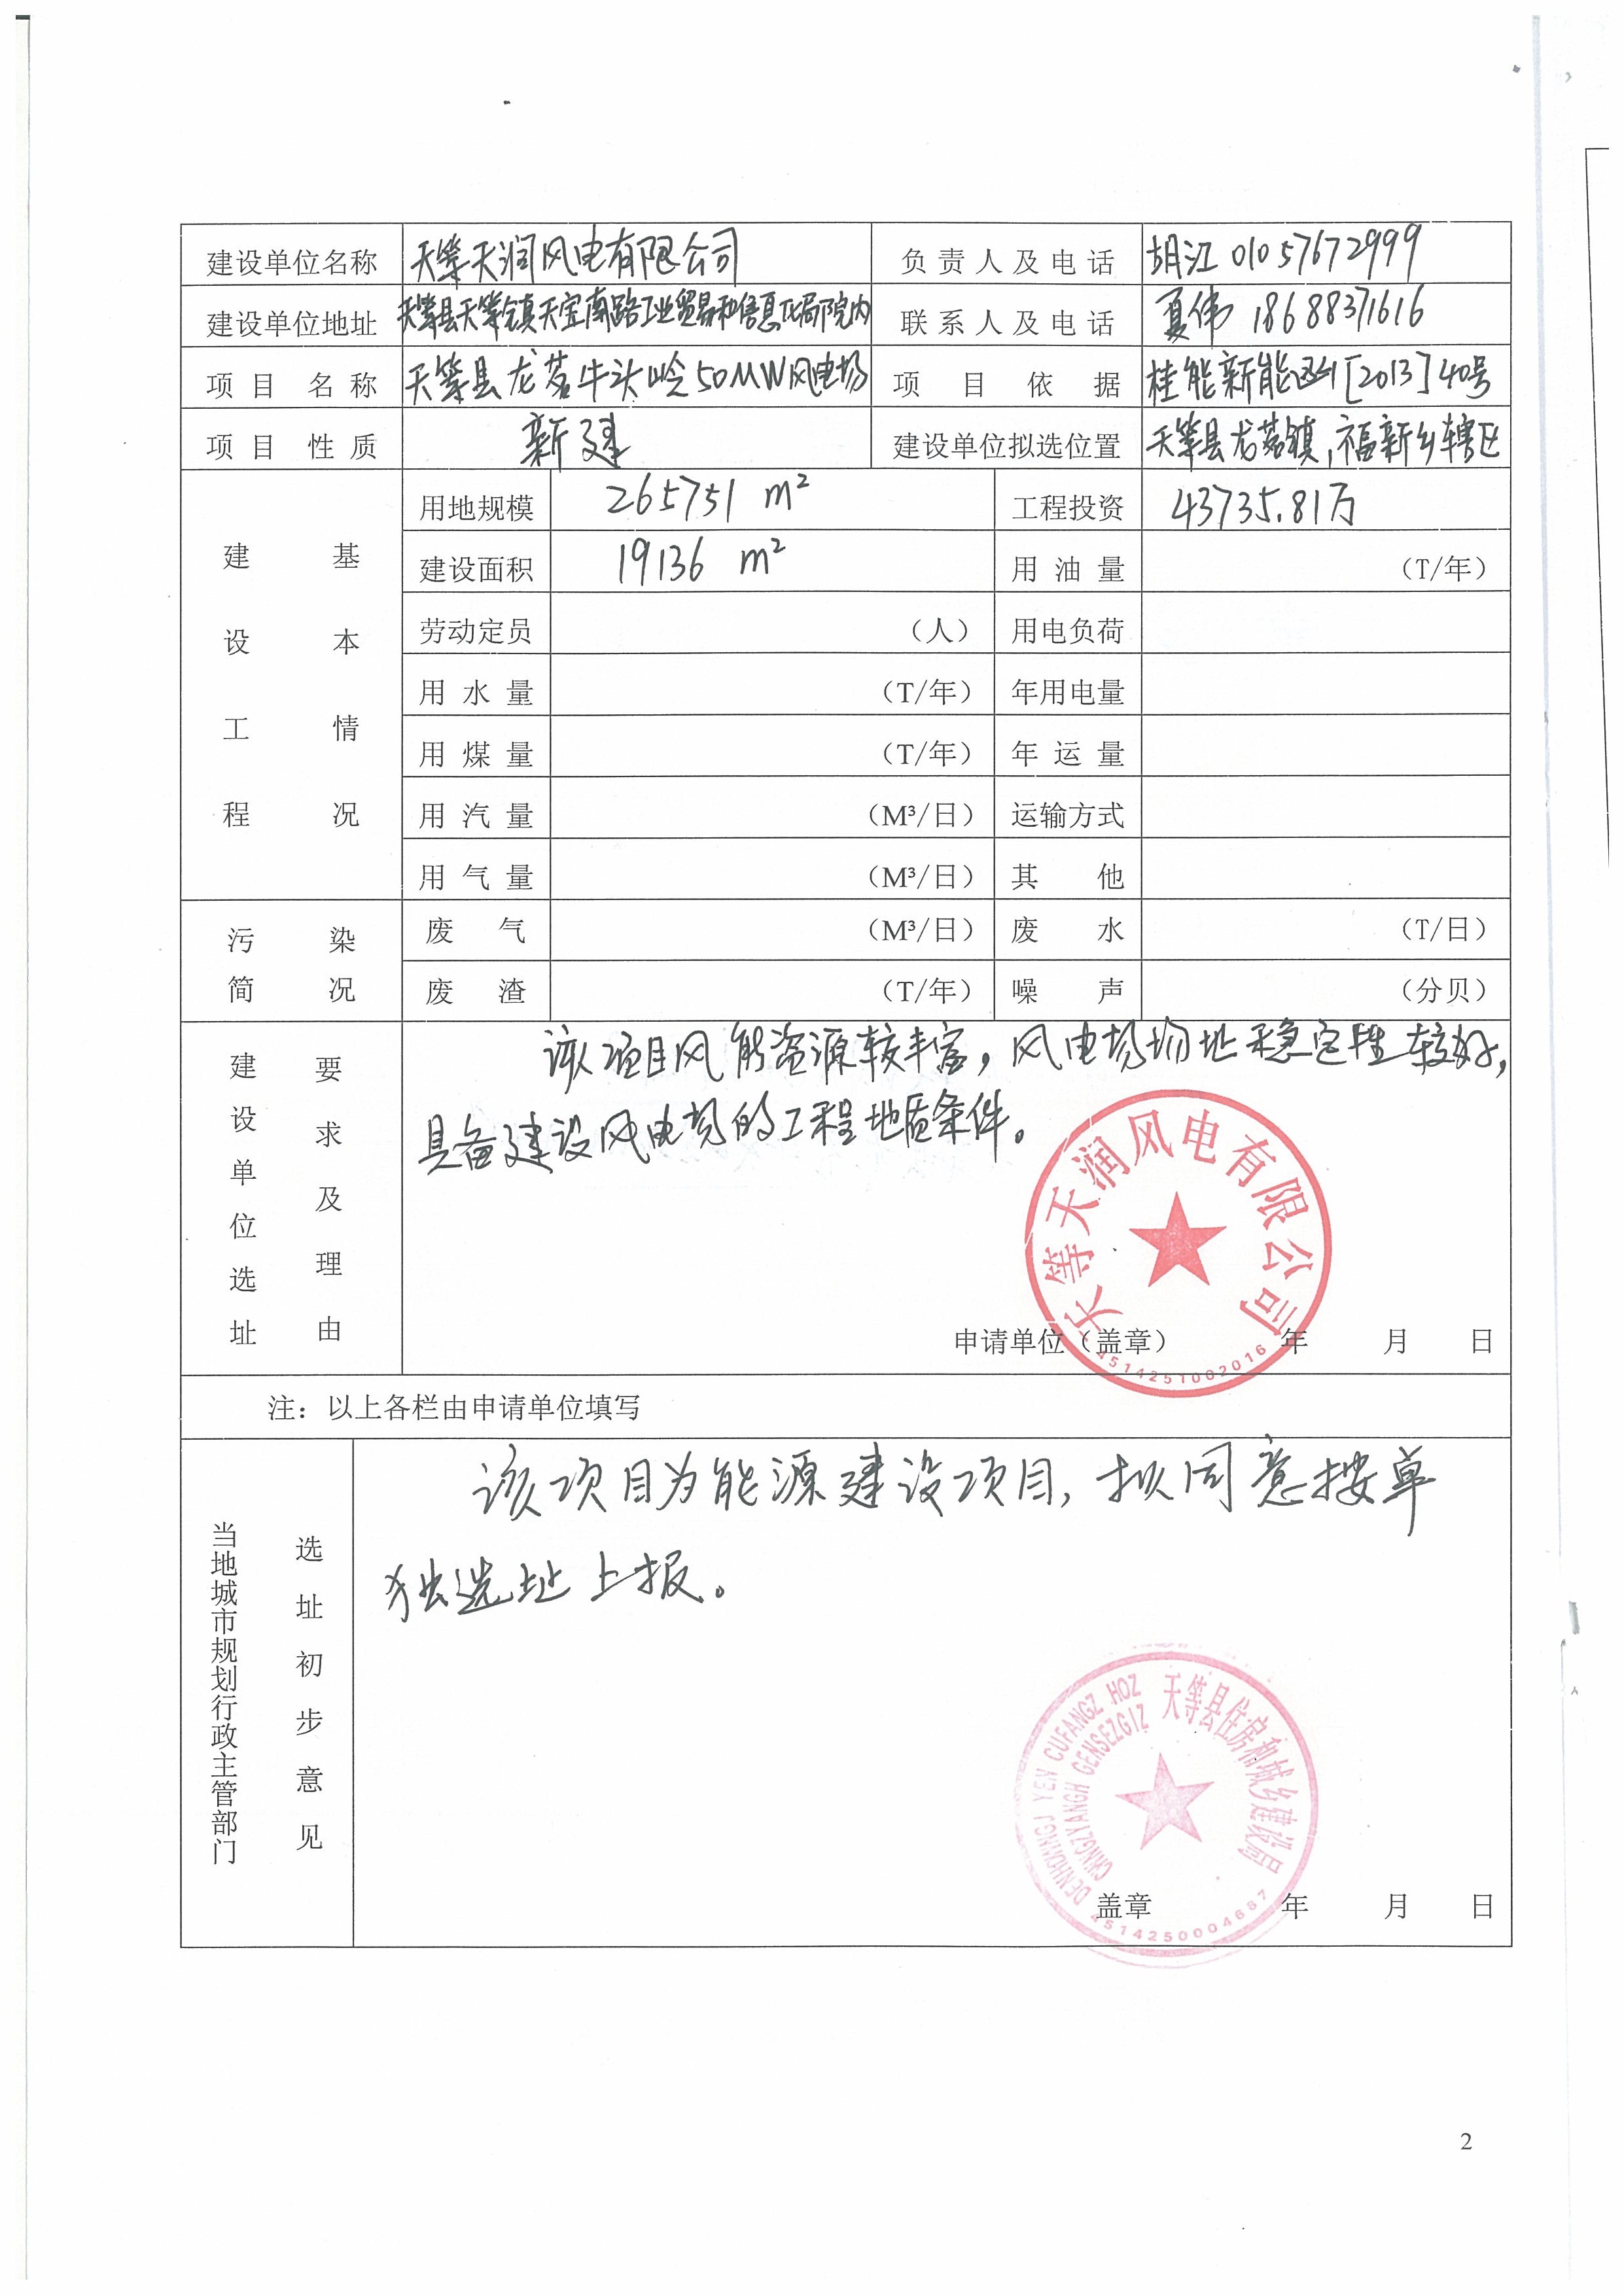 建设单位名称 天等天润风电有限公司 负责人及电话 胡江 01057672999
建设单位地址 天等县天等镇天宝南路工业贸易和信息化局院内 联系人及电话 夏伟 18688371616
项目名称 天等县龙茗牛头岭50MW风电场 项目依据 桂能新能函[2013]40号
项目性质 新建 建设单位拟选位置 天等县龙茗镇,福新乡辖区
建设工程基本情况
用地规模 265751 m² 工程投资 43735.81万
建设面积 19136 m² 用油量 (T/年)
劳动定员 (人) 用电负荷
用水量 (T/年) 年用电量
用煤量 (T/年) 年运量
用汽量 (M³/日) 运输方式
用气量 (M³/日) 其他
污染简况
废气 (M³/日) 废水 (T/日)
废渣 (T/年) 噪声 (分贝)
建设单位选址要求及理由
该项目风能资源较丰富,风电场场址稳定性较好,
具备建设风电场的工程地质条件。
天等天润风电有限公司
4514251002016
申请单位(盖章) 年 月 日
注:以上各栏由申请单位填写
当地城市规划行政主管部门选址初步意见
该项目为能源建设项目,拟同意按单
独选址上报。
DENHDWNGJ YEN CUFANGZ HOZ 天等县住房和城乡建设局
CWNGZYANGH GENSEZGIZ
4514250004687
盖章 年 月 日
2